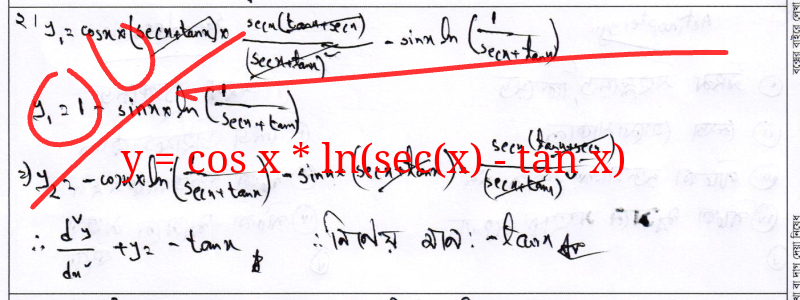 বা) y₁ = cosx x (secx+tanx) x secx(tanx+secx)/(secx+tanx)² - sinx ln (1/(secx+tanx))
y₁ = 1 - sinx x ln (1/(secx+tanx))
y = cos x * ln(sec(x) - tan x)
বা) y₂ = - cosx x ln (1/(secx+tanx)) - sinx x (secx+tanx) secx(tanx+secx)/(secx+tanx)²
∴ d²y/dx² + y = - tanx ∴ নির্ণেয় মান: - tanx